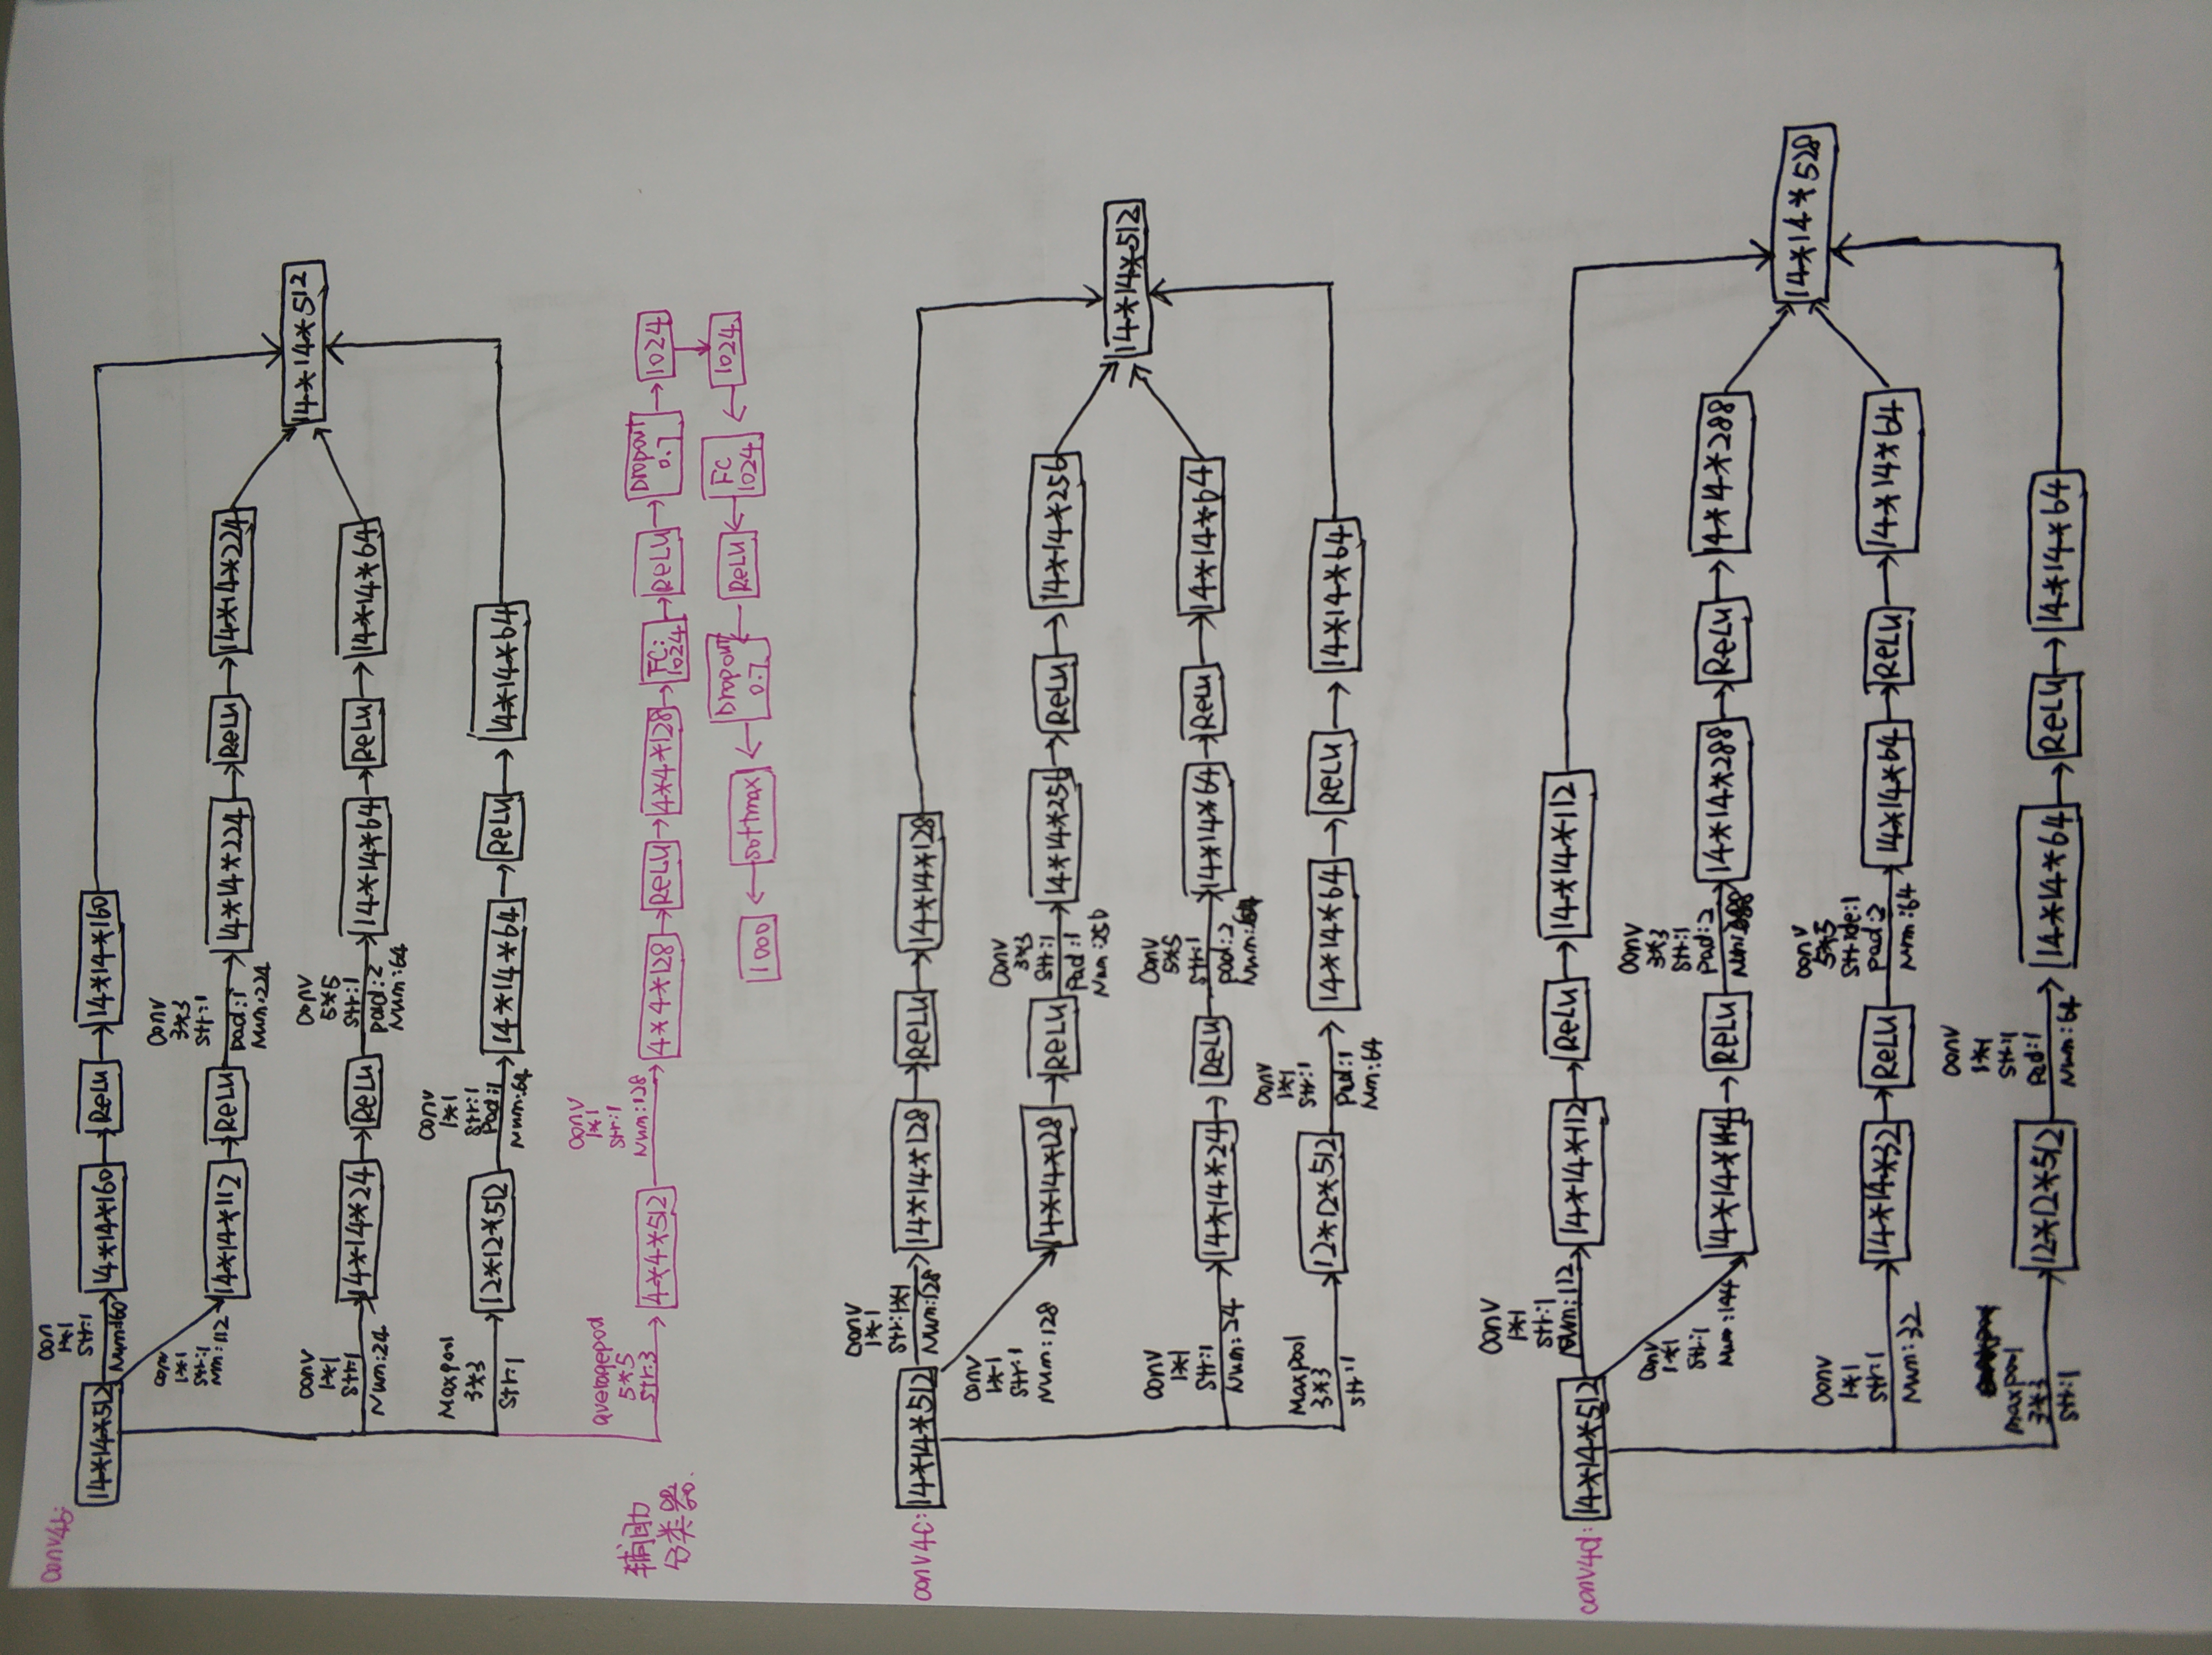 conv4b:
14*14*512
Con
1*1
Str:1
Num:160
14*14*160
ReLU
14*14*160
conv
1*1
Str:1
Num:112
14*14*112
ReLU
Conv
3*3
Str:1
pad:1
Num:224
14*14*224
ReLU
14*14*224
Conv
1*1
Str:1
Num:24
14*14*24
ReLU
Conv
5*5
Str:1
pad:2
Num:64
14*14*64
ReLU
14*14*64
Maxpool
3*3
Str:1
12*12*512
Conv
1*1
Str:1
Pad:1
Num:64
14*14*64
ReLU
14*14*64
14*14*512
辅助
分类器.
averagepool
5*5
Str:3
4*4*512
Conv
1*1
Str:1
Num:128
4*4*128
ReLU
4*4*128
FC:
1024
ReLU
Dropout
0.7
1024
1024
FC
1024
ReLU
Dropout
0.7
softmax
1000
conv4c:
14*14*512
Conv
1*1
Str:1*1
Num:128
14*14*128
ReLU
14*14*128
Conv
1*1
Str:1
Num:128
14*14*128
ReLU
Conv
3*3
Str:1
Pad:1
Num:256
14*14*256
ReLU
14*14*256
Conv
1*1
Str:1
Num:24
14*14*24
ReLU
Conv
5*5
Str:1
pad:2
Num:64
14*14*64
ReLU
14*14*64
Maxpool
3*3
Str:1
12*12*512
Conv
1*1
Str:1
Pad:1
Num:64
14*14*64
ReLU
14*14*64
14*14*512
conv4d:
14*14*512
Conv
1*1
Str:1
Num:112
14*14*112
ReLU
14*14*112
Conv
1*1
Str:1
Num:144
14*14*144
ReLU
Conv
3*3
Str:1
Pad:2
Num:288
14*14*288
ReLU
14*4*288
Conv
1*1
Str:1
Num:32
14*14*32
ReLU
Conv
5*5
Stride:1
Pad:2
Num:64
14*14*64
ReLU
14*14*64
maxpool
3*3
Str:1
12*12*512
Conv
1*1
Str:1
Pad:1
Num:64
14*14*64
ReLU
14*14*64
14*14*528